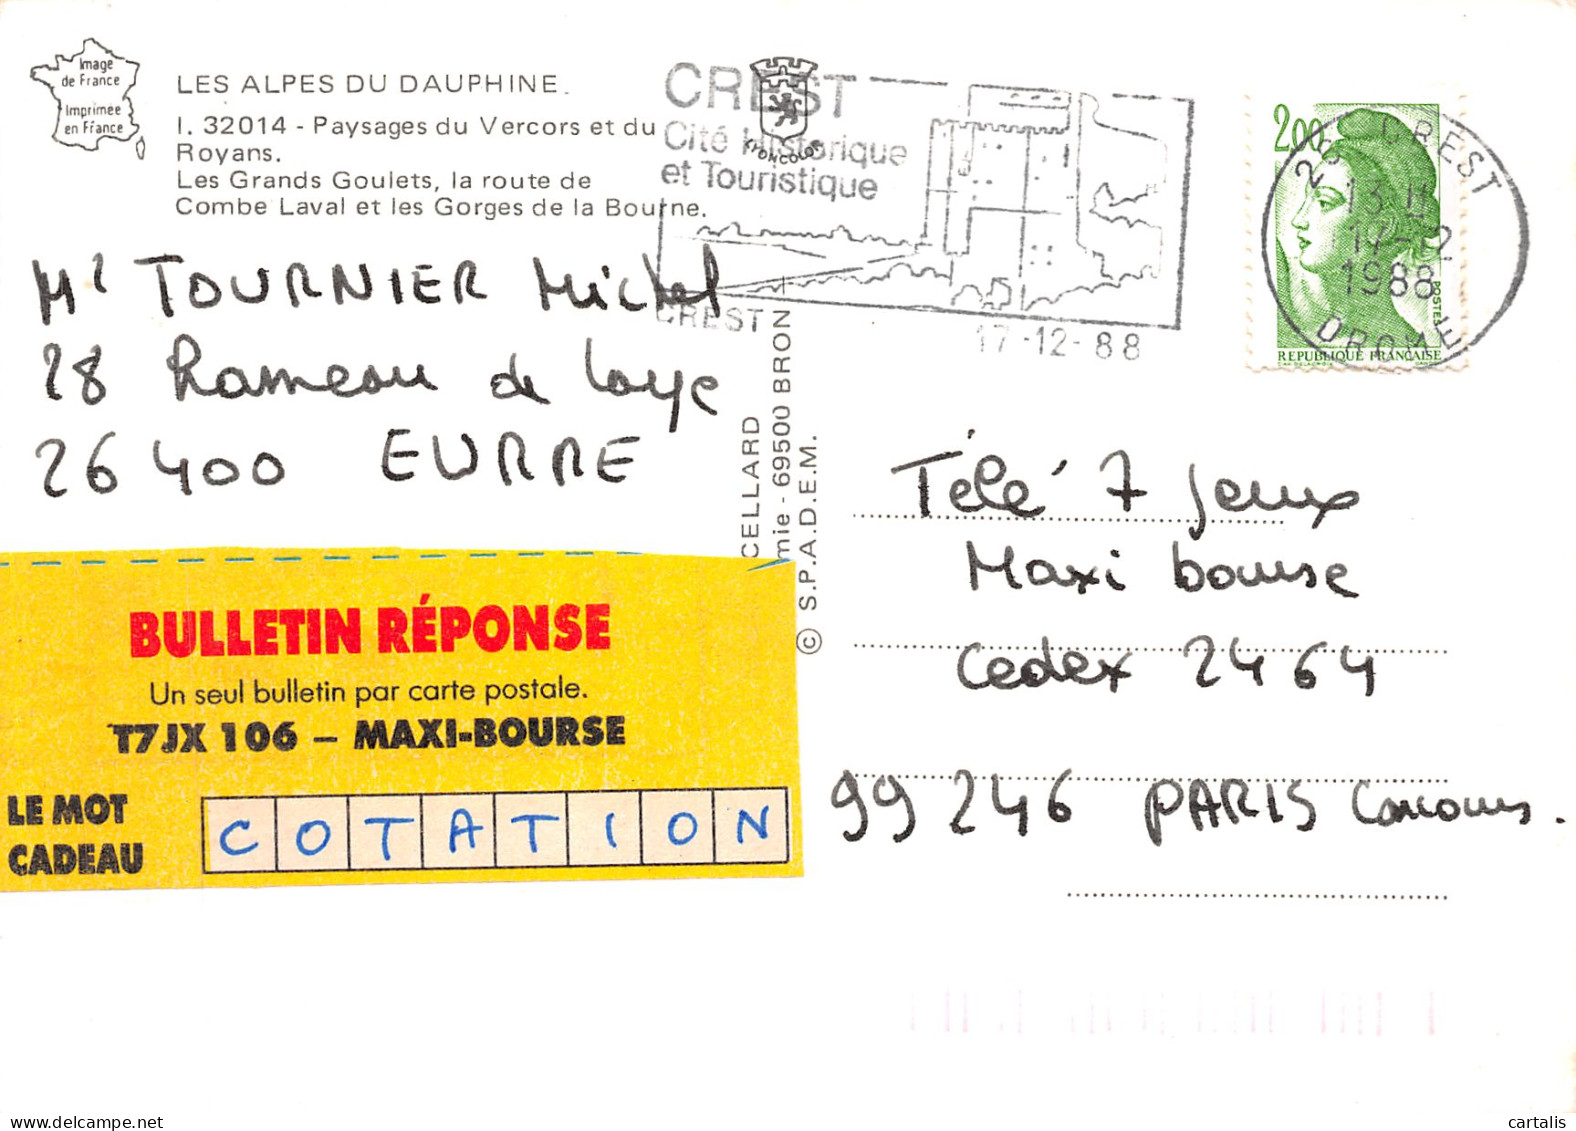 Image
de France
Imprimée
en France
LES ALPES DU DAUPHINE.
I. 32014 - Paysages du Vercors et du
Royans.
Les Grands Goulets, la route de
Combe Laval et les Gorges de la Bourne.
CREST
Cité Historique
et Touristique
LYONCOLOR
CREST
17-12-88
2,00
REPUBLIQUE FRANÇAISE
POSTES
26 CREST
13 H
17-12
1988
DROME
Mr TOURNIER Michel
28 Rameau de Loye
26 400 EURRE
CELLARD
mie - 69500 BRON
© S.P.A.D.E.M.
Télé 7 Jeux
Maxi bourse
Cedex 2464
99 246 PARIS Concours.
BULLETIN RÉPONSE
Un seul bulletin par carte postale.
T7JX 106 – MAXI-BOURSE
LE MOT
CADEAU
COTATION
cartalis